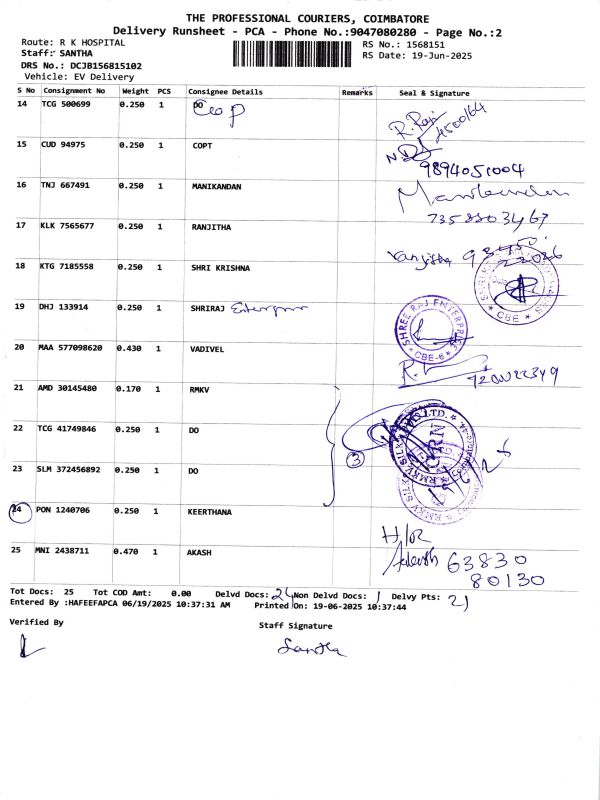 THE PROFESSIONAL COURIERS, COIMBATORE
Delivery Runsheet - PCA - Phone No.:9047080280 - Page No.:2
Route: R K HOSPITAL
RS No.: 1568151
Staff: SANTHA
RS Date: 19-Jun-2025
DRS No.: DCJB156815102
Vehicle: EV Delivery
S No Consignment No Weight PCS Consignee Details Remarks Seal & Signature
14 TCG 500699 0.250 1 DO
15 CUD 94975 0.250 1 COPT
9894051004
16 TNJ 667491 0.250 1 MANIKANDAN
7358803467
17 KLK 7565677 0.250 1 RANJITHA
Ranjitha
18 KTG 7185558 0.250 1 SHRI KRISHNA
CBE
19 DHJ 133914 0.250 1 SHRIRAJ
SHREE RAJ ENTERPRISE
CBE-6
20 MAA 577098620 0.430 1 VADIVEL
21 AMD 30145480 0.170 1 RMKV
22 TCG 41749846 0.250 1 DO
23 SLM 372456892 0.250 1 DO
3
RMKV SILK
24 PON 1240706 0.250 1 KEERTHANA
25 MNI 2438711 0.470 1 AKASH
63830
80130
Tot Docs: 25 Tot COD Amt: 0.00 Delvd Docs: 24 Non Delvd Docs: 1 Delvy Pts: 21
Entered By :HAFEEFAPCA 06/19/2025 10:37:31 AM Printed On: 19-06-2025 10:37:44
Verified By
Staff Signature
Santha